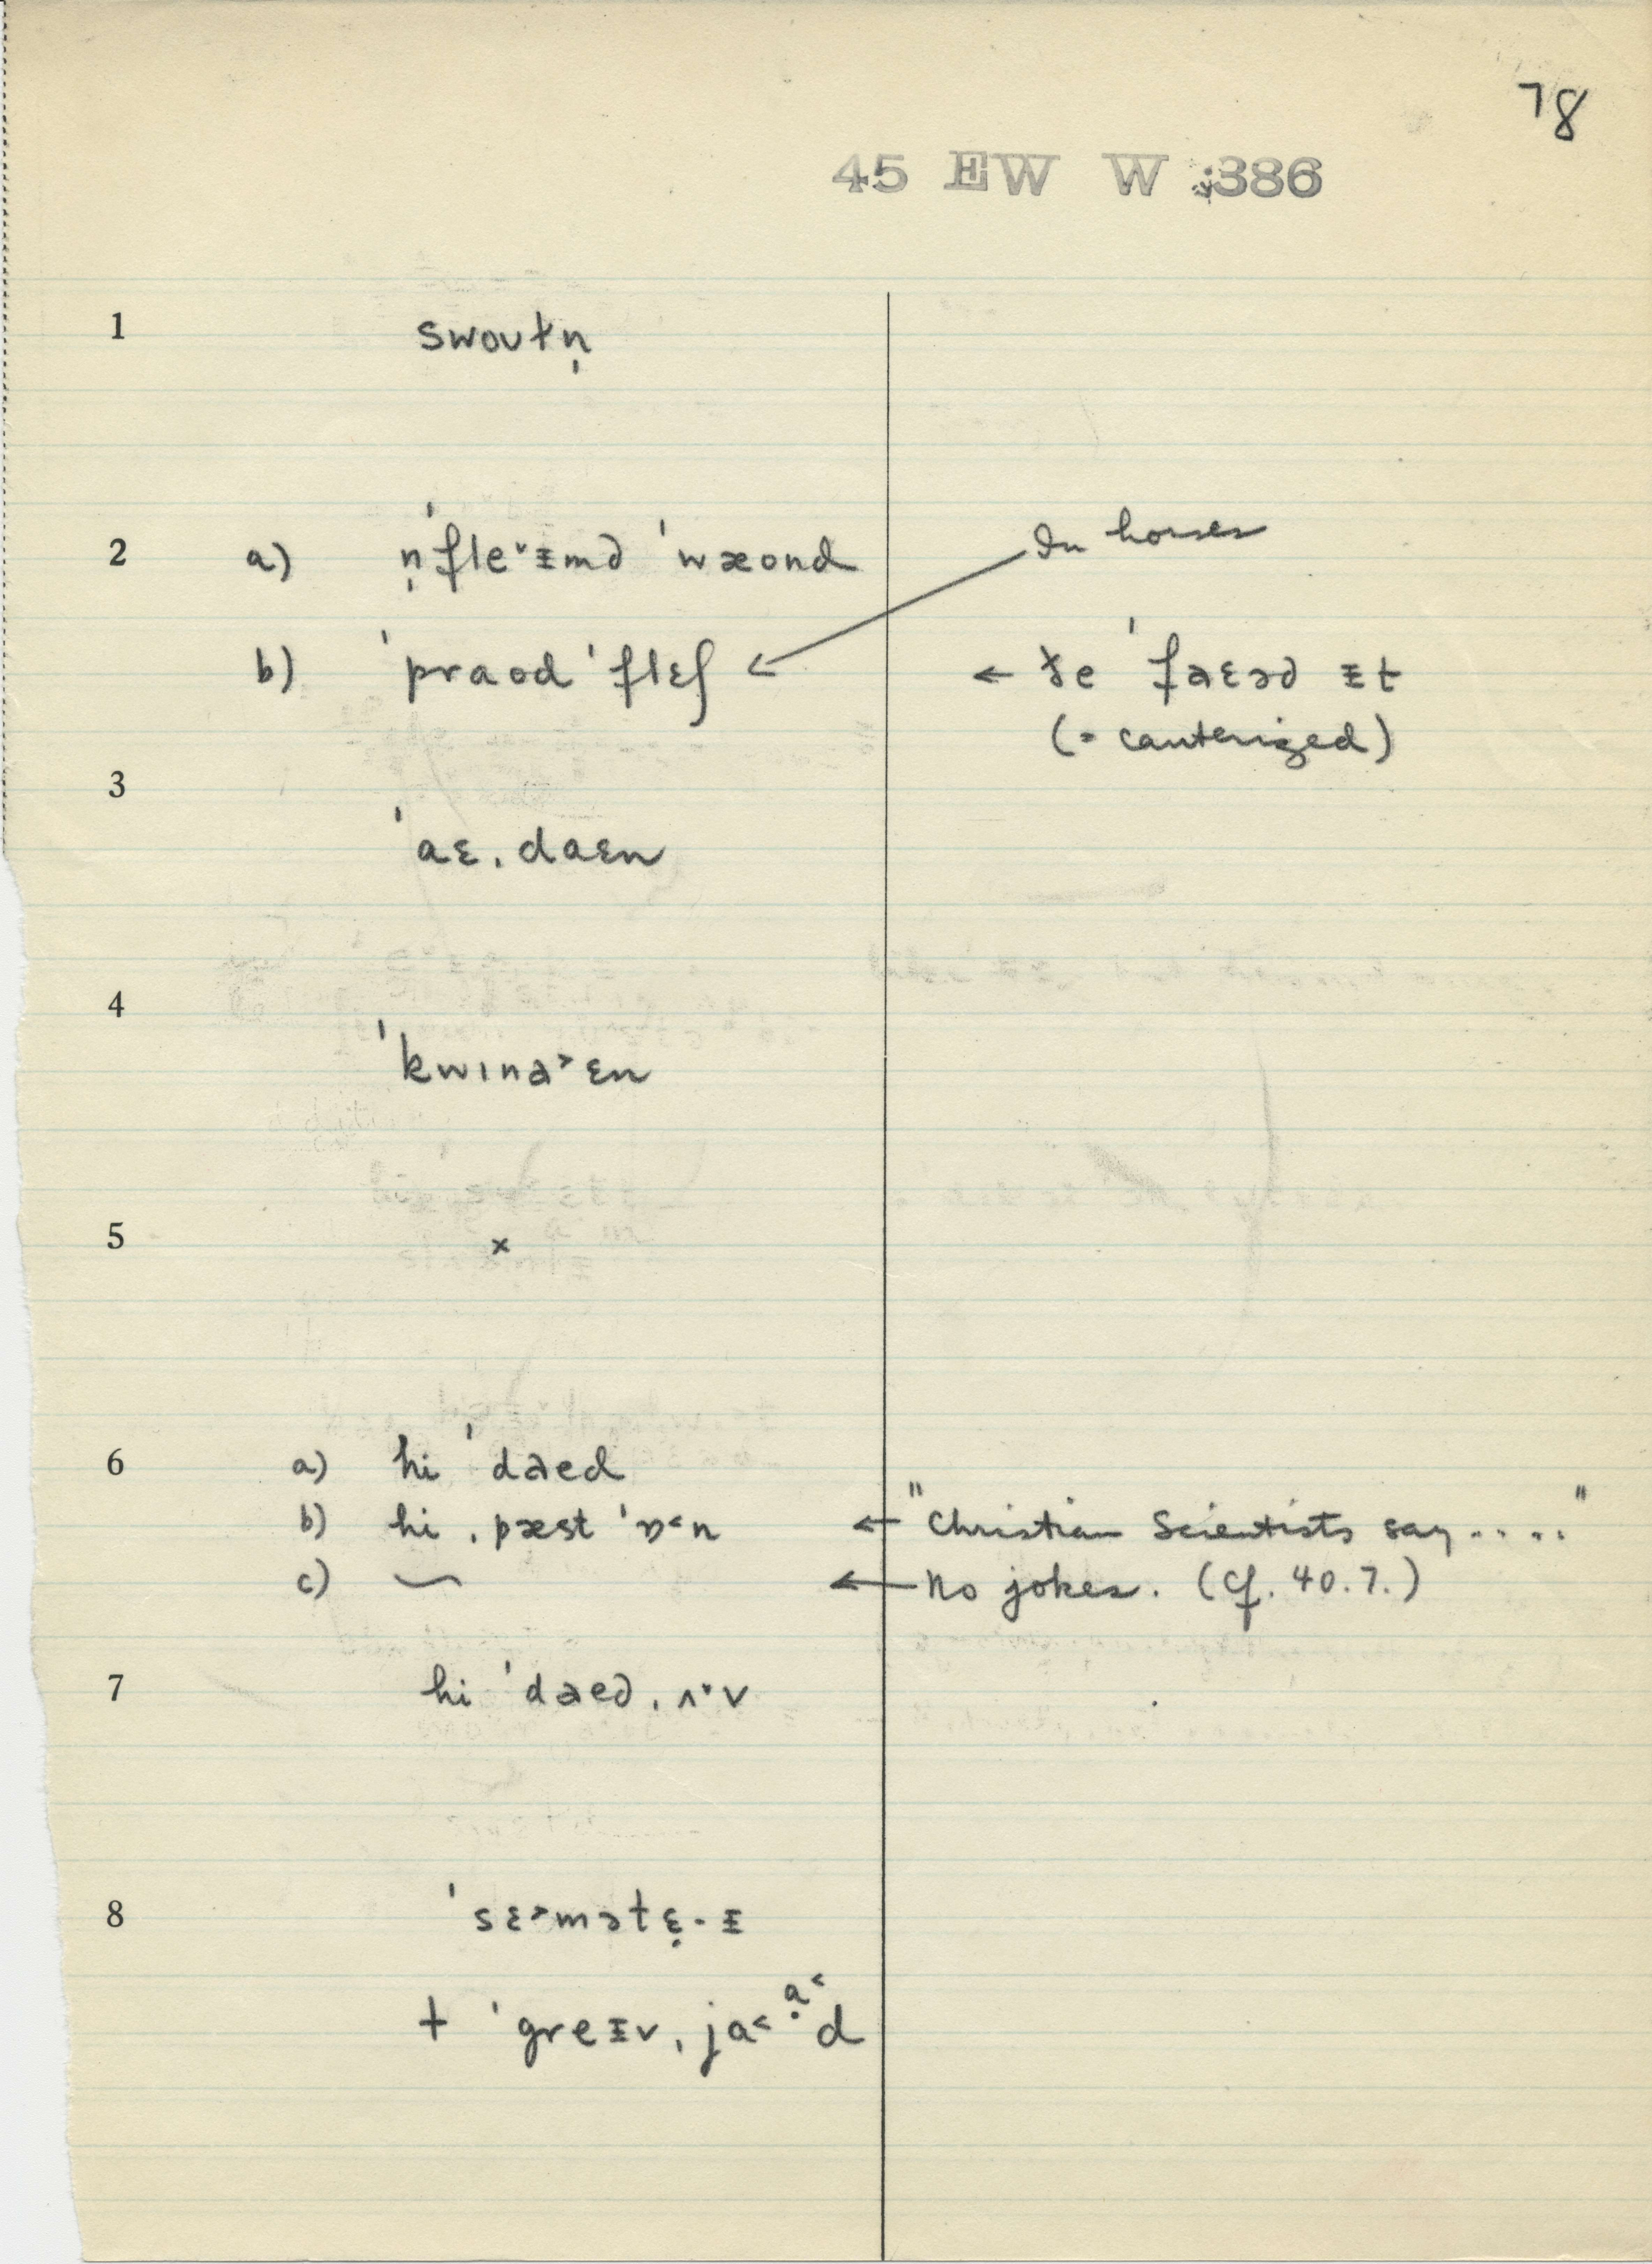 78
45 EW W 386
1 swoʊtn̩
2 a) n̩ˈfleˇᵻmd ˈwæond In horses
b) ˈpraʊd ˈflɛʃ ← ← ðe ˈfaɛəd ᵻt
(= cauterized)
3
ˈaɛˌdaɛn
4
ˈkwɪna˃ɛn
5 x
6 a) hi ˈdaɛd
b) hi ˌpæst ˈɒ˂n ← "Christian Scientists say....."
c) ⁓ ← No jokes. (cf. 40.7.)
7 hi ˈdaɛdˌʌˑv
8 ˈsɛ˃mətɛ̣·ᵻ
+ ˈgreᵻvˌja˂ạ˂d